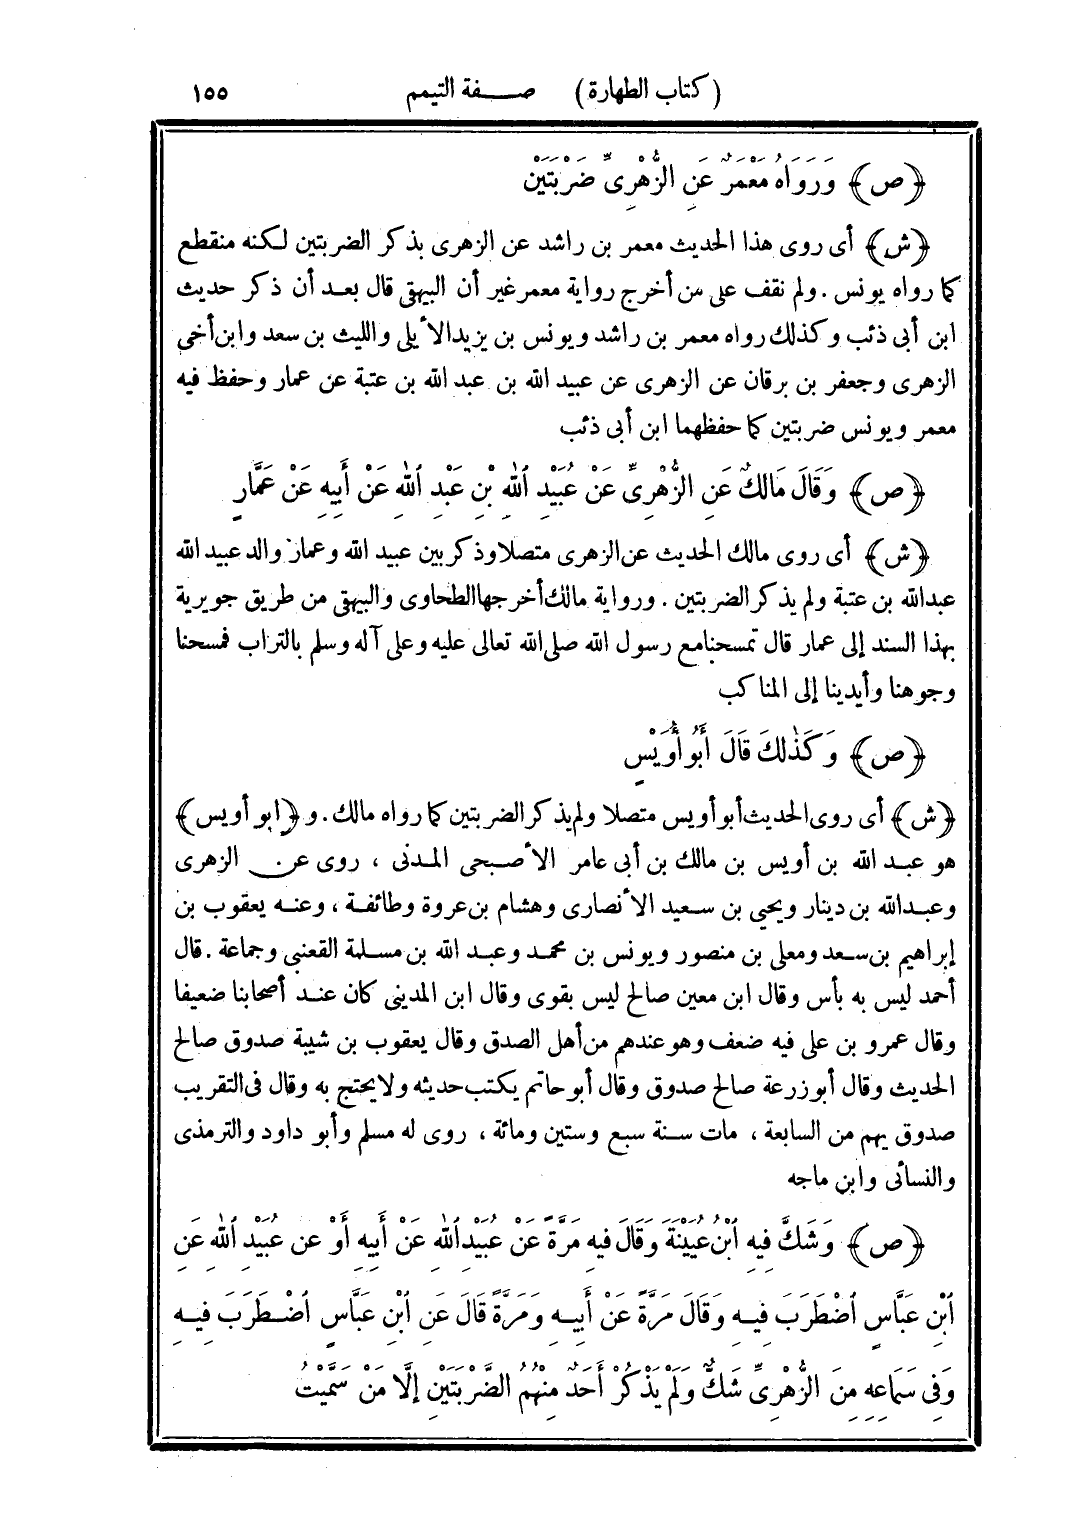 (كتاب الطهارة) صفة التيمم ١٥٥
﴿ص﴾ وَرَوَاهُ مَعْمَرٌ عَنِ الزُّهْرِىِّ ضَرْبَتَيْنِ
﴿ش﴾ أى روى هذا الحديث معمر بن راشد عن الزهرى بذكر الضربتين لكنه منقطع
كما رواه يونس . ولم نقف على من أخرج رواية معمر غير أن البيهقى قال بعد أن ذكر حديث
ابن أبى ذئب وكذلك رواه معمر بن راشد ويونس بن يزيد الأيلى والليث بن سعد وابن أخى
الزهرى وجعفر بن برقان عن الزهرى عن عبيد الله بن عبد الله بن عتبة عن عمار وحفظ فيه
معمر ويونس ضربتين كما حفظهما ابن أبى ذئب
﴿ص﴾ وَقَالَ مَالِكٌ عَنِ الزُّهْرِىِّ عَنْ عُبَيْدِ ٱللهِ بْنِ عَبْدِ ٱللهِ عَنْ أَبِيهِ عَنْ عَمَّارٍ
﴿ش﴾ أى روى مالك الحديث عن الزهرى متصلا وذكر بين عبيد الله وعمار والد عبيد الله
عبد الله بن عتبة ولم يذكر الضربتين . ورواية مالك أخرجها الطحاوى والبيهقى من طريق جويرية
بهذا السند إلى عمار قال تمسحنا مع رسول الله صلى الله تعالى عليه وعلى آله وسلم بالتراب فمسحنا
وجوهنا وأيدينا إلى المناكب
﴿ص﴾ وَكَذٰلِكَ قَالَ أَبُو أُوَيْسٍ
﴿ش﴾ أى روى الحديث أبو أويس متصلا ولم يذكر الضربتين كما رواه مالك . و ﴿أبو أويس﴾
هو عبد الله بن أويس بن مالك بن أبى عامر الأصبحى المدنى ، روى عن الزهرى
وعبد الله بن دينار ويحيى بن سعيد الأنصارى وهشام بن عروة وطائفة ، وعنه يعقوب بن
إبراهيم بن سعد ومعلى بن منصور ويونس بن محمد وعبد الله بن مسلمة القعنبى وجماعة . قال
أحمد ليس به بأس وقال ابن معين صالح ليس بقوى وقال ابن المدينى كان عند أصحابنا ضعيفا
وقال عمرو بن على فيه ضعف وهو عندهم من أهل الصدق وقال يعقوب بن شيبة صدوق صالح
الحديث وقال أبو زرعة صالح صدوق وقال أبو حاتم يكتب حديثه ولا يحتج به وقال فى التقريب
صدوق يهم من السابعة ، مات سنة سبع وستين ومائة ، روى له مسلم وأبو داود والترمذى
والنسائى وابن ماجه
﴿ص﴾ وَشَكَّ فِيهِ ٱبْنُ عُيَيْنَةَ وَقَالَ فِيهِ مَرَّةً عَنْ عُبَيْدِ ٱللهِ عَنْ أَبِيهِ أَوْ عَنْ عُبَيْدِ ٱللهِ عَنِ
ٱبْنِ عَبَّاسٍ ٱضْطَرَبَ فِيهِ وَقَالَ مَرَّةً عَنْ أَبِيهِ وَمَرَّةً قَالَ عَنِ ٱبْنِ عَبَّاسٍ ٱضْطَرَبَ فِيهِ
وَفِى سَمَاعِهِ مِنَ الزُّهْرِىِّ شَكٌّ وَلَمْ يَذْكُرْ أَحَدٌ مِنْهُمُ الضَّرْبَتَيْنِ إِلَّا مَنْ سَمَّيْتُ